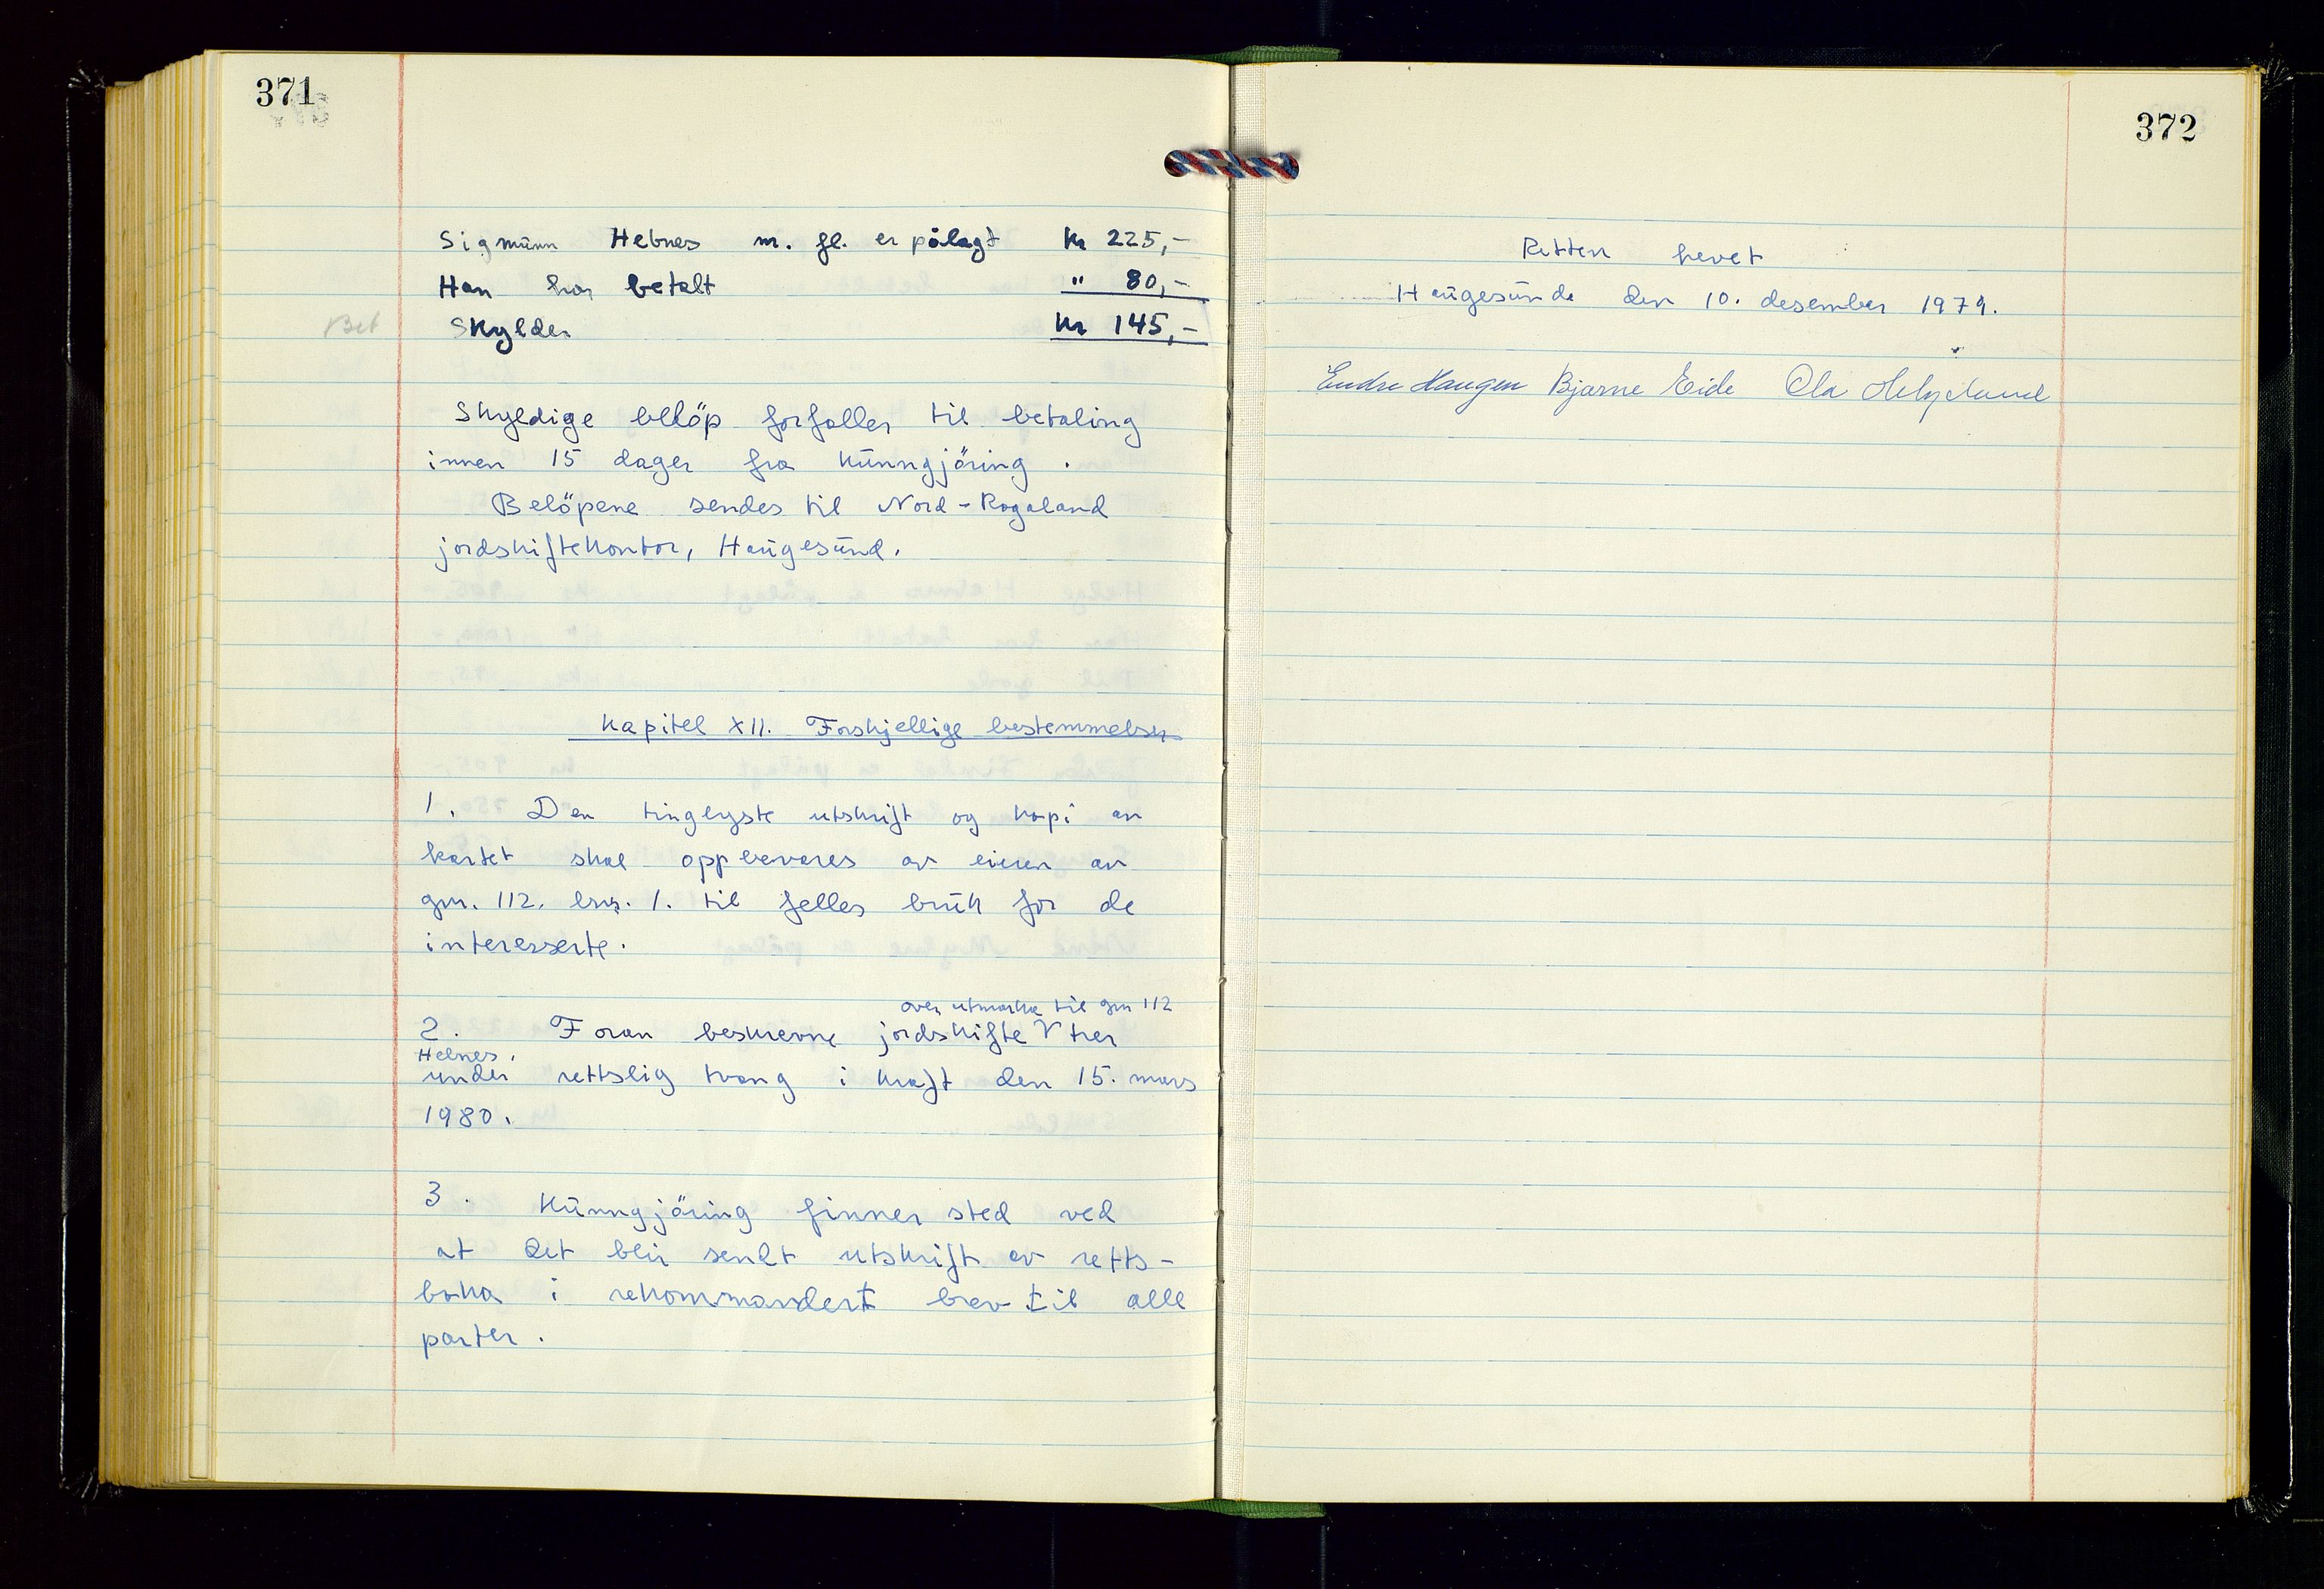 371
Sigmunn Hebnes m. fl. er pålagt kr 225,-
Han har betalt " 80,-
Bet Skylder kr 145,-
Skyldige belöp forfaller til betaling
innen 15 dager fra kunngjöring.
Belöpene sendes til Nord-Rogaland
jordskiftekontor, Haugesund.
Kapitel XII. Forskjellige bestemmelser
1. Den tinglyste utskrift og kopi av
kartet skal oppbevares av eieren av
gnr. 112. bnr. 1. til felles bruk for de
interesserte.
over utmarka til gnr 112
2. Foran beskrevne jordskifte V trer
Hebnes.
under rettslig tvang i kraft den 15. mars
1980.
3. Kunngjöring finner sted ved
at det blir sendt utskrift av retts-
boka i rekommandert brev til alle
parter.
372
Retten hevet
Haugesund den 10. desember 1979.
Endre Haugen Bjarne Eide Ola